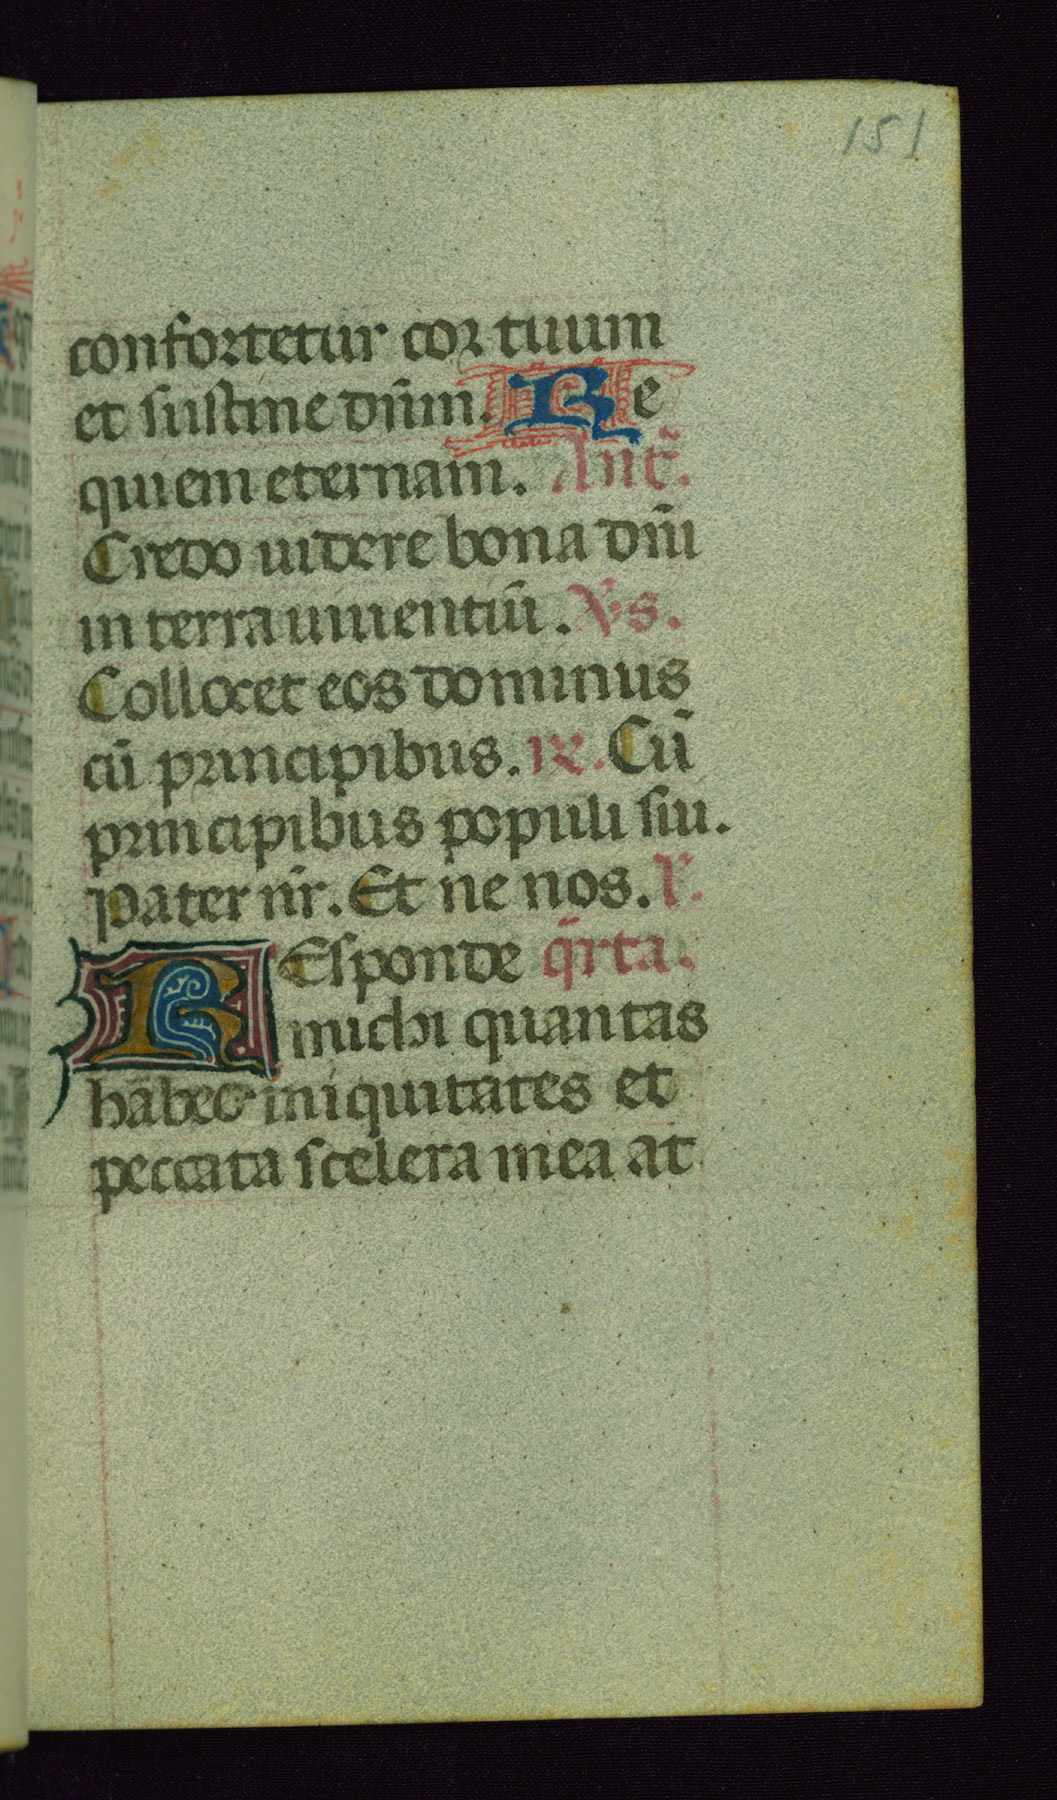 151
confortetur cor tuum
et sustine dn̄m. Re
quiem eternam. Ant̄.
Credo uidere bona dn̄i
in terra uiuentiū. Vs.
Collocet eos dominus
cū principibus. R. Cū
principibus populi sui.
Pater nr̄. Et ne nos. l̄.
REsponde q̄rta.
michi quantas
habeo iniquitates et
peccata scelera mea at